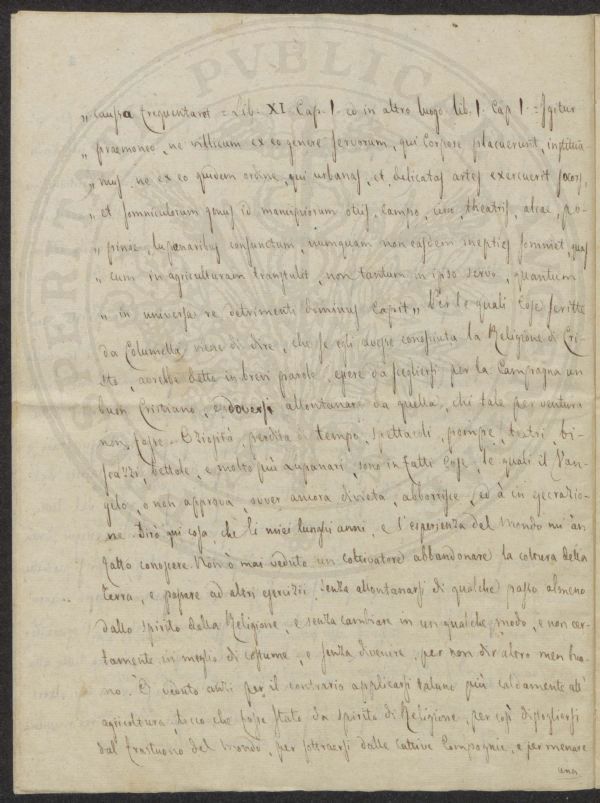 „ causa frequentaret = Lib. XI. Cap. I. ed in altro luogo lib. I. Cap. I. = Igitur
„ praemoneo, ne villicum ex eo genere servorum, qui corpore placuerunt, instituia-
„ mus, ne ex eo quidem ordine, qui urbanas, et delicatas artes exercuerit socors,
„ et somniculosum genus id mancipiorum otiis, campo, circo, theatris, aleae, po-
„ pinae, lupanaribus consuetum, numquam non easdem ineptias somniet, quas
„ cum in agriculturam transtulit, non tantum in ipso servo, quantum
„ in universa re detrimenti dominus capit „ Per le quali cose scritte
da Columella, viene di dire, che se egli avesse conosciuta la Religione di Cri-
sto, avrebbe detto in brevi parole, essere da scegliersi per la Campagna un
buon Cristiano, e doversi allontanare da quella, chi tale per ventura
non fosse. Oziosità, perdita di tempo, spettacoli, pompe, teatri, bi-
scazzi, bettole, e molto più Lupanari, sono in fatti cose, le quali il Van-
gelo, o non approva, ovver ancora divieta, abborrisce, ed à in esecrazio-
ne. Dirò qui cosa, che li miei lunghi anni, e l'esperienza del mondo mi àn
fatto conoscere. Non ò mai veduto un coltivatore abbandonare la coltura della
terra, e passare ad altri esercizii senza allontanarsi di qualche passo almeno
dallo spirito della Religione, e senza cambiare in un qualche modo, e non cer-
tamente in meglio di costume, e senza divenire, per non dir altro men buo-
no. Ò veduto anzi per il contrario applicarsi taluno più caldamente all'
agricoltura, tocco che fosse stato da spirito di Religione, per così dispogliarsi
dal frastuono del mondo, per sottrarsi dalle cattive Compagnie, e per menare
una